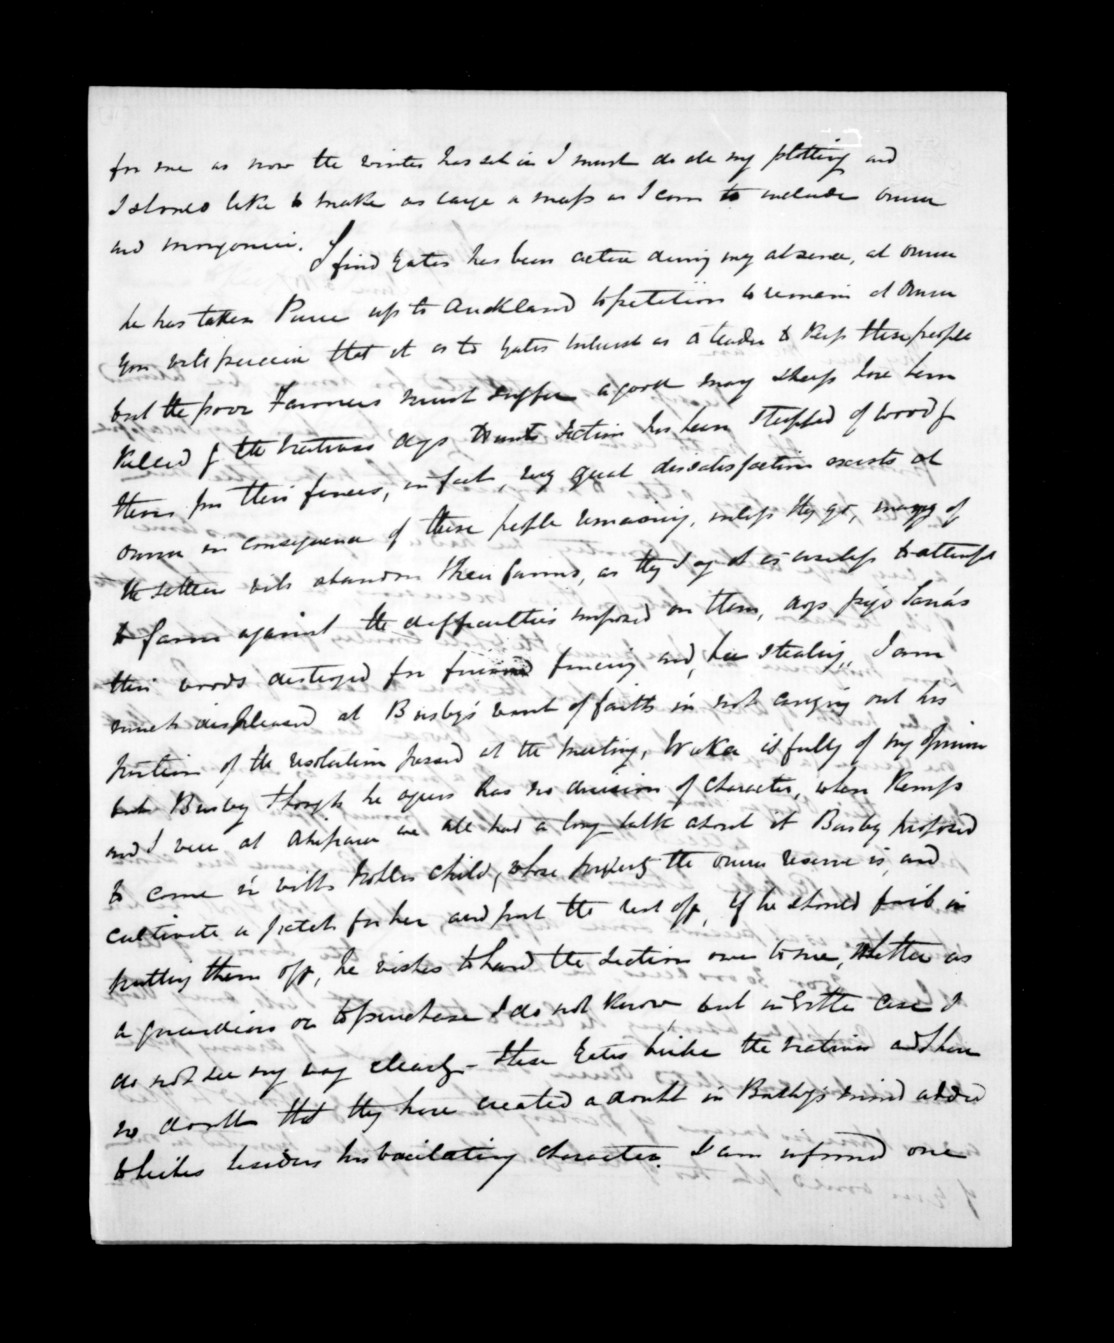 for me as now the winter has set in I must do all my plotting and
I should like to make as large a mass as I can to include Omura
and Mongonui.
I find Yates has been active during my absence, at Omura
he has taken up to Auckland to petition to remain at Omura
you will perceive that it is to Yates interest as a trader to keep these people
but the poor Farmers must suffer a good many sheep have been
killed by the natives dogs section has been stripped of wood by
them for their fences, in fact, very great dissatisfaction exists at
Omura in consequence of these people remaining, unless they go, many of
the settlers will abandon their farms, as they say it is useless to attempt
to farm against the difficulties imposed on them, dogs pigs
their woods destroyed for firewood fencing and, stealing, I am
much displeased at Busby's want of faith in not carrying out his
portion of the resolution passed at the meeting, Waka is fully of my opinion
but Busby though he agrees has no decision of character, when Kemp
and I were at Ahipara we all had a long talk about it Busby proposed
to come in with child, whose property the Omura reserve is, and
cultivate a patch for her, and put the rest off, if he should fail in
putting them off, he wishes to hand the section over to me, whether as
a guardian or to purchase I do not know but in either case I
do not see my way clearly - these Yates the natives and I have
no doubt that they have created a doubt in Busby's mind added
to besides his vacilating character. I am informed one